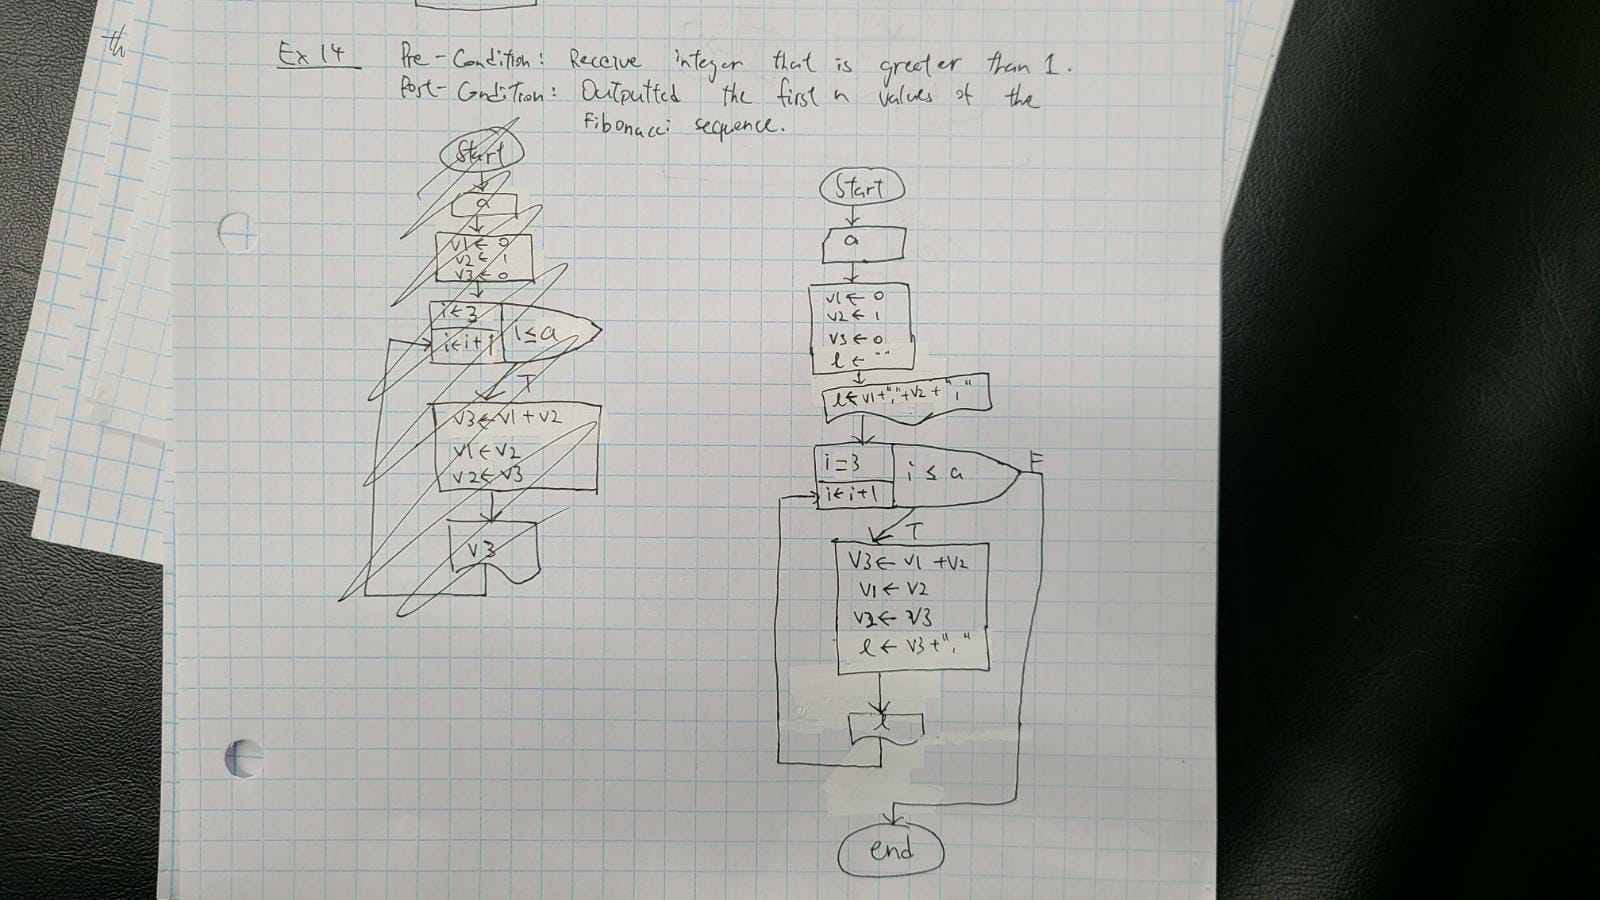 th
Ex 14
Pre-Condition: Receive integer that is greater than 1.
Post-Condition: Outputted the first n values of the
fibonacci sequence.
Start
a
v1 ← 0
v2 ← 1
v3 ← 0
i ← 3
i ← i+1
i ≤ a
T
v3 ← v1 + v2
v1 ← v2
v2 ← v3
v3
Start
a
v1 ← 0
v2 ← 1
v3 ← 0
l ← ""
l ← v1+","+v2+","
i = 3
i ← i+1
i ≤ a
F
T
V3 ← v1 + v2
v1 ← v2
v2 ← v3
l ← v3+","
l
end